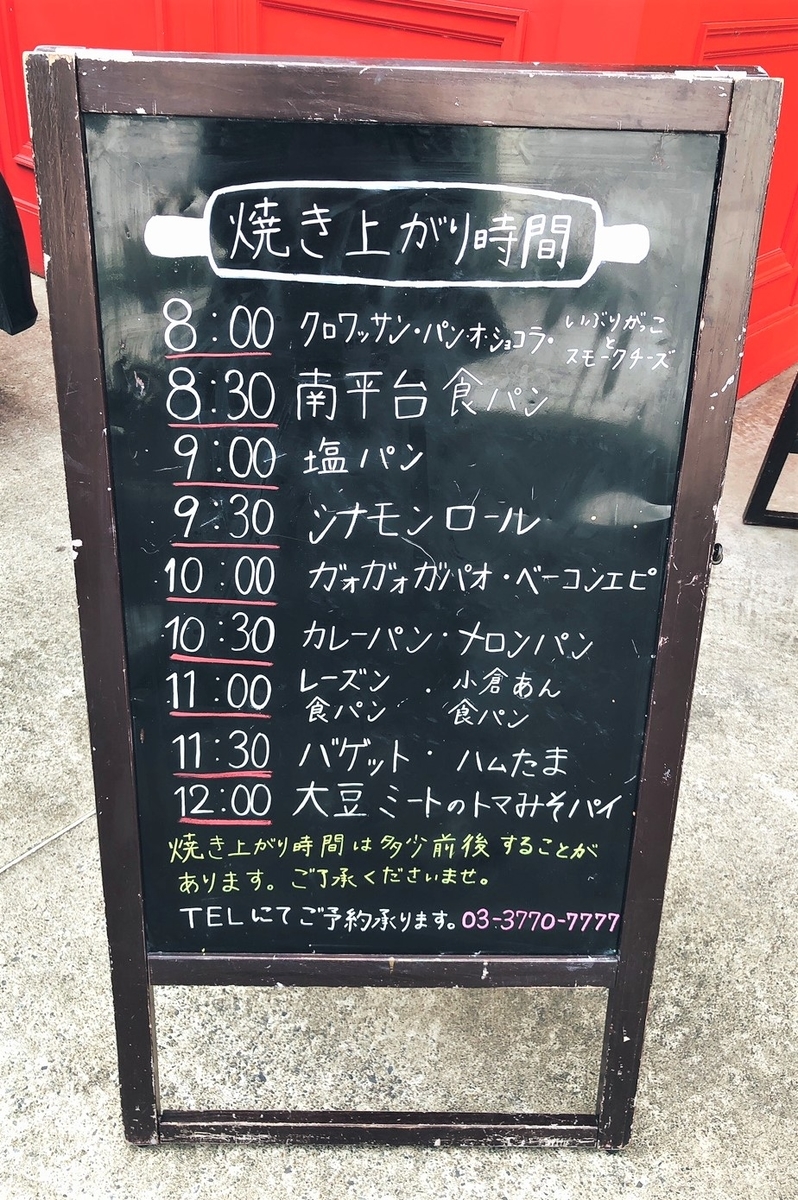 焼き上がり時間
8:00 クロワッサン・パンオ・ショコラ・いぶりがっことスモークチーズ
8:30 南平台食パン
9:00 塩パン
9:30 シナモンロール
10:00 ガォガォガパオ・ベーコンエピ
10:30 カレーパン・メロンパン
11:00 レーズン食パン・小倉あん食パン
11:30 バゲット・ハムたま
12:00 大豆ミートのトマみそパイ
焼き上がり時間は多少前後することが
あります。ご了承くださいませ。
TELにてご予約承ります。03-3770-7777